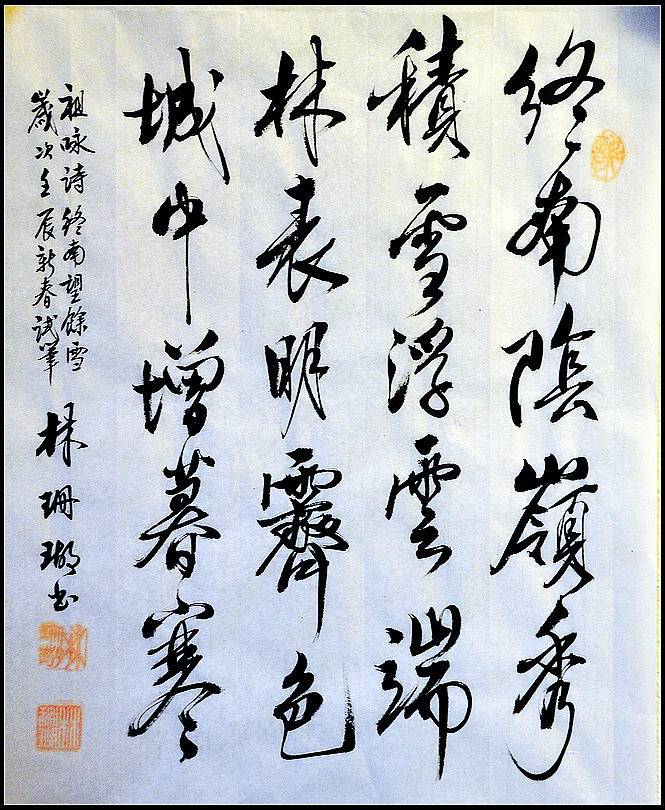 終南陰嶺秀
積雪浮雲端
林表明霽色
城中增暮寒
祖咏詩終南望餘雪
歲次壬辰新春試筆
林珊瑚書